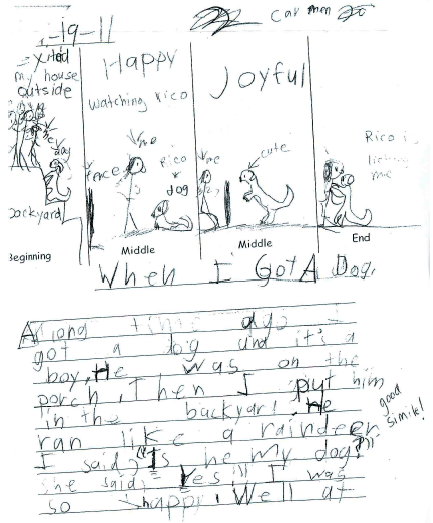 -19-11
Carmen
Exited
my house
outside
me
dog
Backyard
Beginning
Happy
watching rico
me
fence
Rico
dog
Middle
Joyful
me
cute
Middle
Rico is
licking
me
End
When I Got A Dog.
A long time ago I
got a dog and it's a
boy. He was on the
porch, Then I put him
in the backyard. He
ran like a raindeer
good
simile!
I said, "Is he my dog?"
she said, Yes!!! I was
so happy! Well at